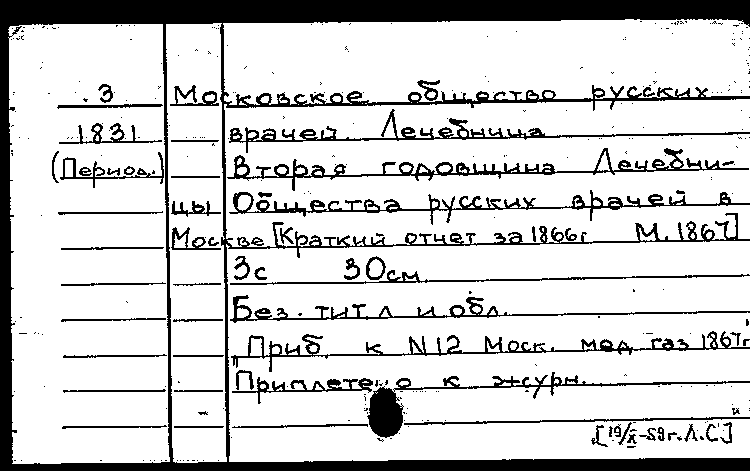 3 Московское общество русских
1831 врачей. Лечебница
(Период.) Вторая годовщина Лечебни-
цы Общества русских врачей в
Москве [Краткий отчет за 1866г М. 1867]
3с 30см
Без. тит. л и обл.
"Приб к N12 Моск. мед газ 1867г"
Приплетено к журн.
[19/X-59г. Л.С.]